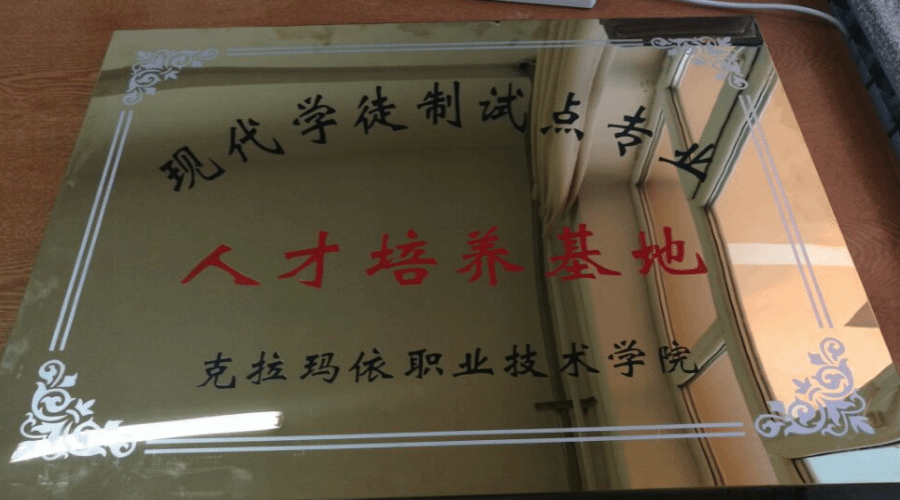 现代学徒制试点专业
人才培养基地
克拉玛依职业技术学院